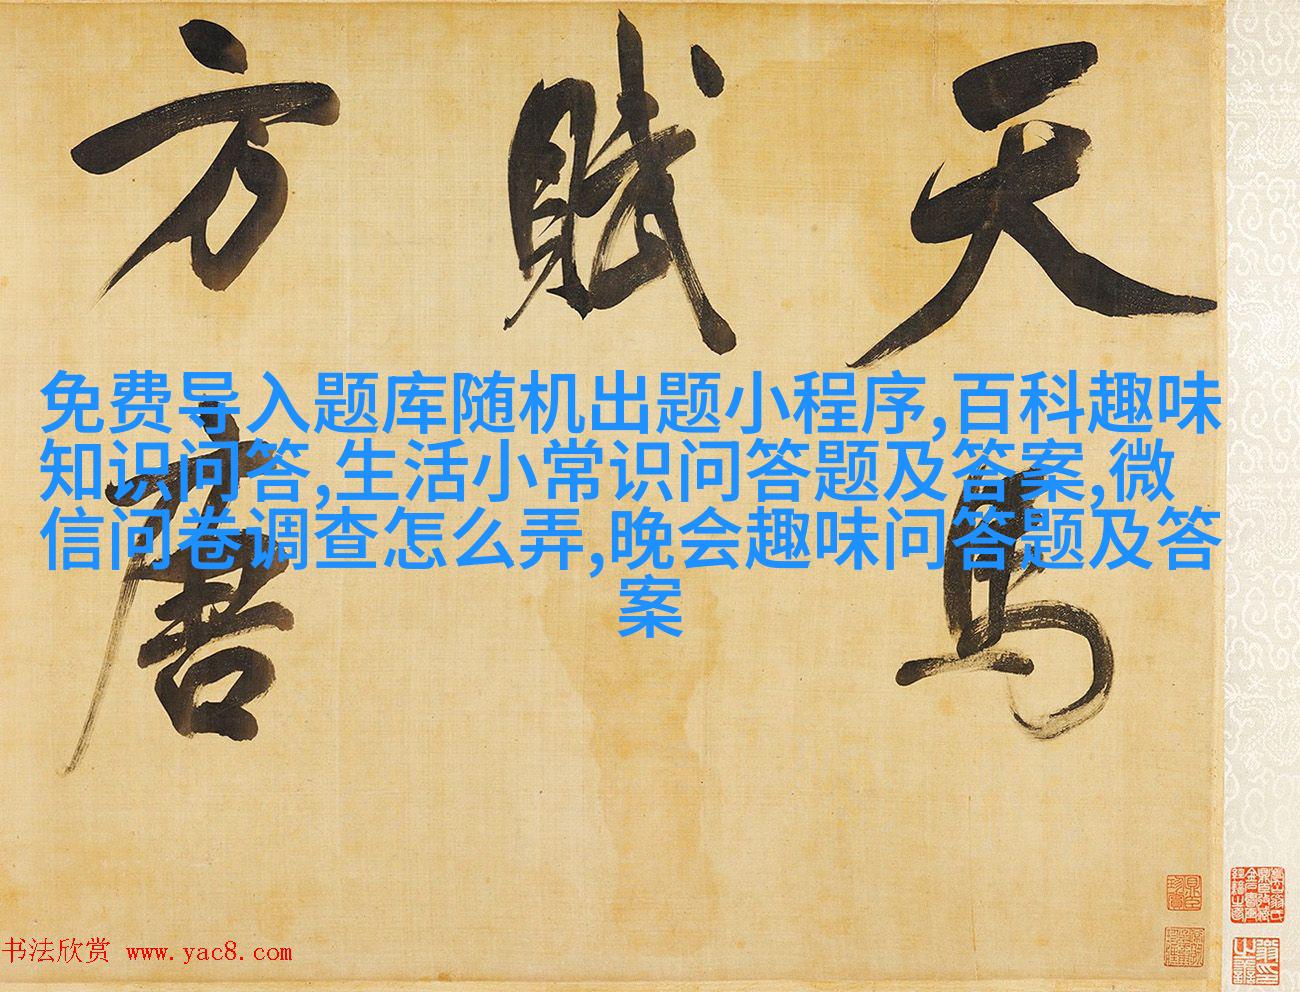 天馬
賦
方唐
免费导入题库随机出题小程序,百科趣味
知识问答,生活小常识问答题及答案,微
信问卷调查怎么弄,晚会趣味问答题及答
案
书法欣赏 www.yac8.com